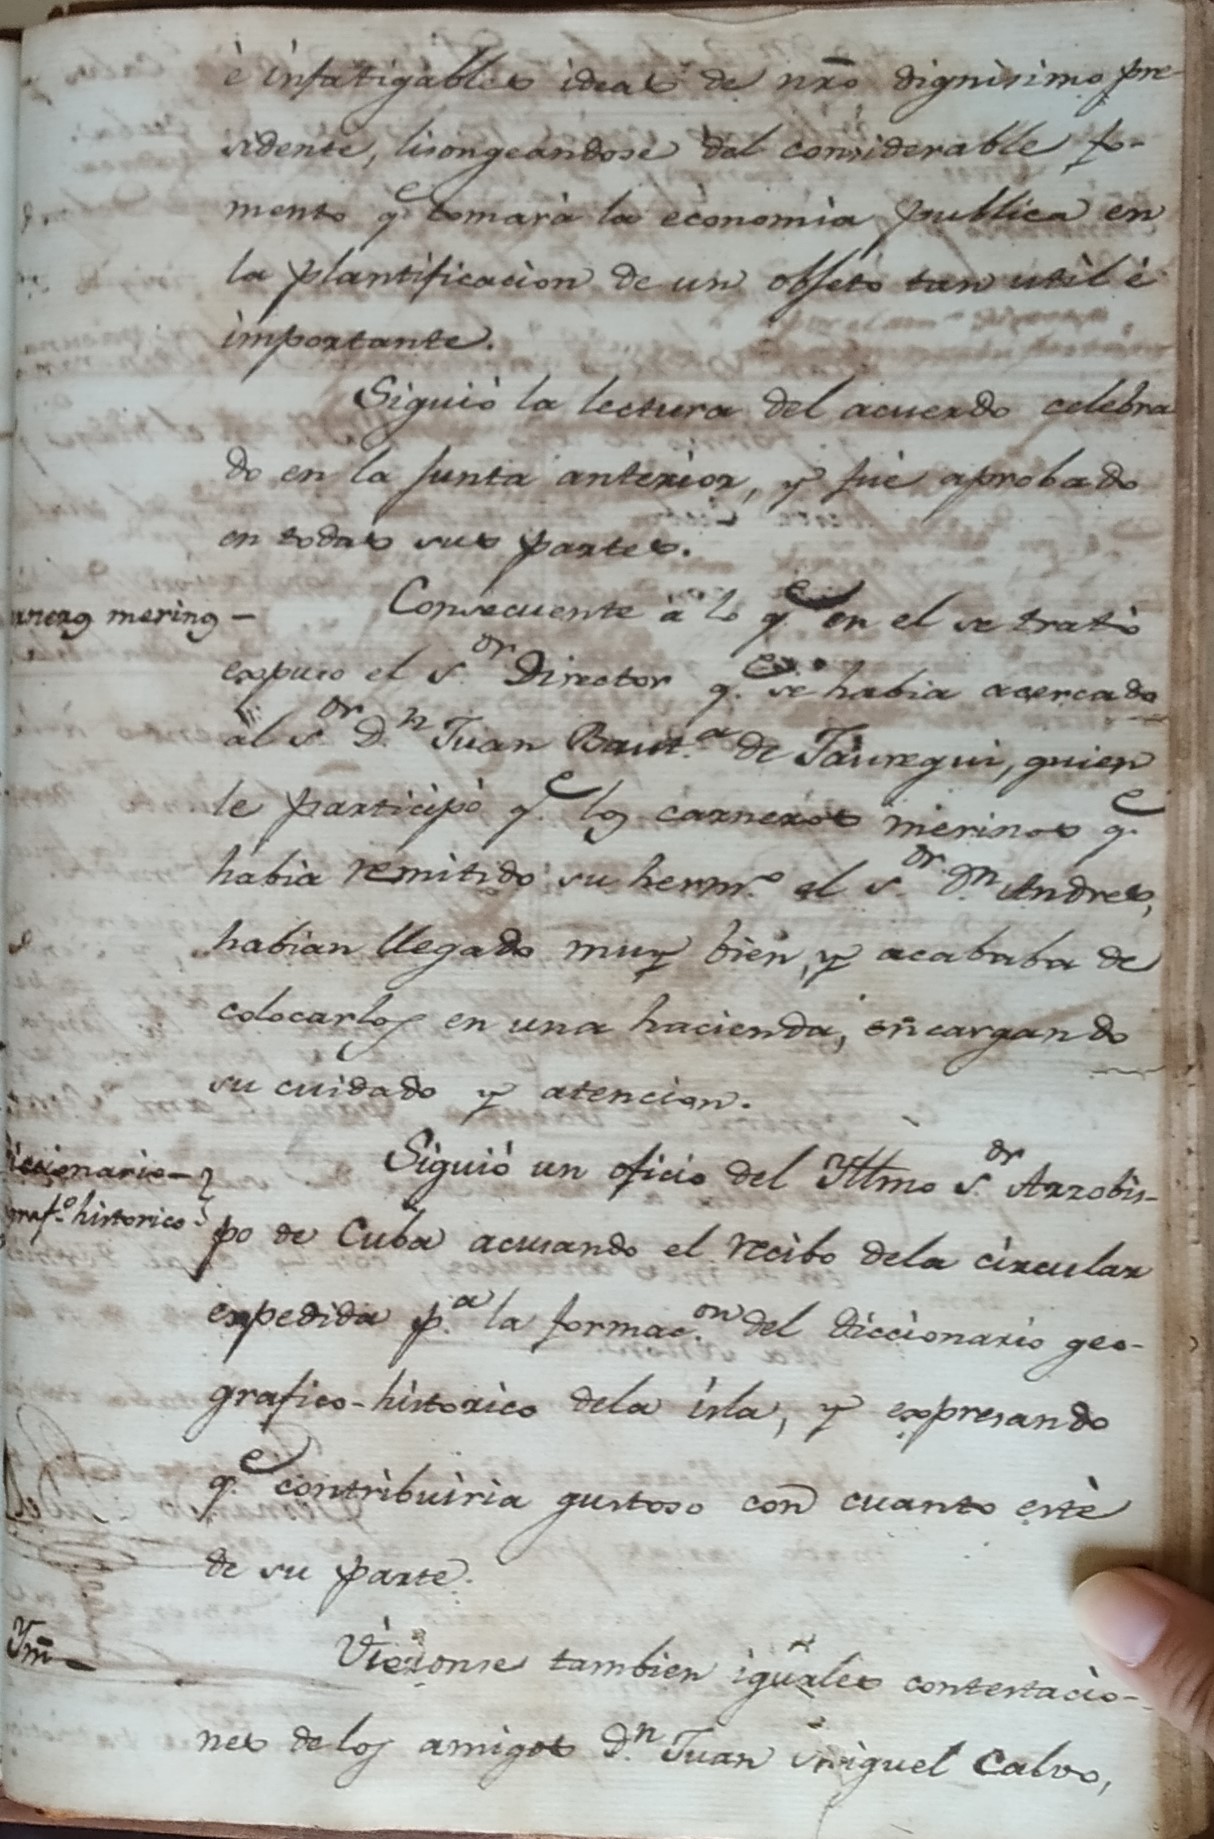 è infatigables ideas de nr̃o dignisimo pre-
sidente, lisongeandose dèl considerable fo-
mento qᵉ tomarà la economia publica en
la plantificacion de un objeto tan util è
importante.
Siguiò la lectura del acuerdo celebra
do en la junta anterior, y fuè aprobado
en todas sus partes.
merinos –
Consecuente à lo q.ᵉ en el se tratò
expuso el S.ᵒʳ Director q.ᵉ se habia acercado
al S.ᵒʳ D.ⁿ Juan Baut.ᵃ de Jauregui, quien
le participò q.ᵉ los carneros merinos q.ᵉ
habia remitido su herm.ᵒ el S.ᵒʳ D.ⁿ Andres,
habian llegado muy bien, y acababa de
colocarlos en una hacienda, encargando
su cuidado y atencion.
iccionario –
graf.ᵒ historico
Siguiò un oficio del Yltmo S.ᵒʳ Arzobis-
po de Cuba acusando el recibo dela circular
expedida p.ᵃ la formac.ᵒⁿ del diccionario geo-
grafico-historico dela isla, y expresando
q.ᵉ contribuiria gustoso con cuanto estè
de su parte.
Ym̃ –
Vieronse tambien iguales contestacio-
nes de los amigos D.ⁿ Juan Miguel Calvo,